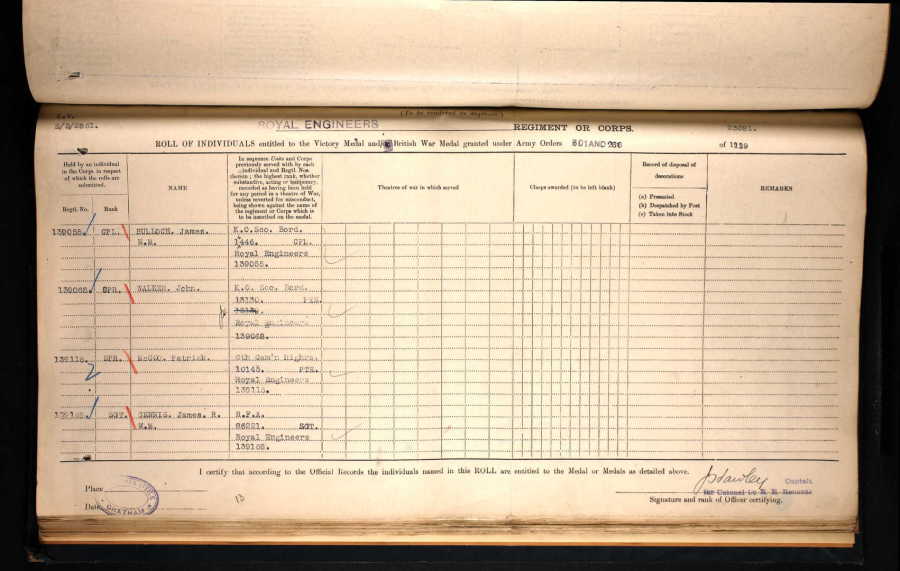 (To be rendered in duplicate)
E/2/2551.
ROYAL ENGINEERS REGIMENT OR CORPS.
ROLL OF INDIVIDUALS entitled to the Victory Medal and/or British War Medal granted under Army Orders 301 AND 266 of 1919
Held by an individual in the Corps in respect of which the rolls are submitted.
Regtl. No. Rank
NAME
In sequence Units and Corps
previously served with by each
individual and Regtl. Nos.
therein; the highest rank, whether
substantive, acting or temporary,
recorded as having been held
for any period in a theatre of War,
unless reverted for misconduct,
being shown against the name of
the regiment or Corps which is
to be inscribed on the medal.
Theatres of war in which served
Clasps awarded (to be left blank)
Record of disposal of
decorations
(a) Presented
(b) Despatched by Post
(c) Taken into Stock
REMARKS
139055. CPL. BULLOCH, James. K.O.Sco. Bord.
M.M. 1446. CPL.
Royal Engineers
139055.
139068. SPR. WALKER, John. K.O. Sco. Bord.
13130. PTE.
Royal Engineers
139068.
139115. SPR. McCOO, Patrick. 6th Cam'n Highrs.
10145. PTE.
Royal Engineers
139115.
SGT. James R. R.F.A.
M.M. 86221. SGT.
Royal Engineers
139165.
I certify that according to the Official Records the individuals named in this ROLL are entitled to the Medal or Medals as detailed above.
Place
CHATHAM
Date
13
Captain
for Colonel i/c R. E. Records
Signature and rank of Officer certifying.